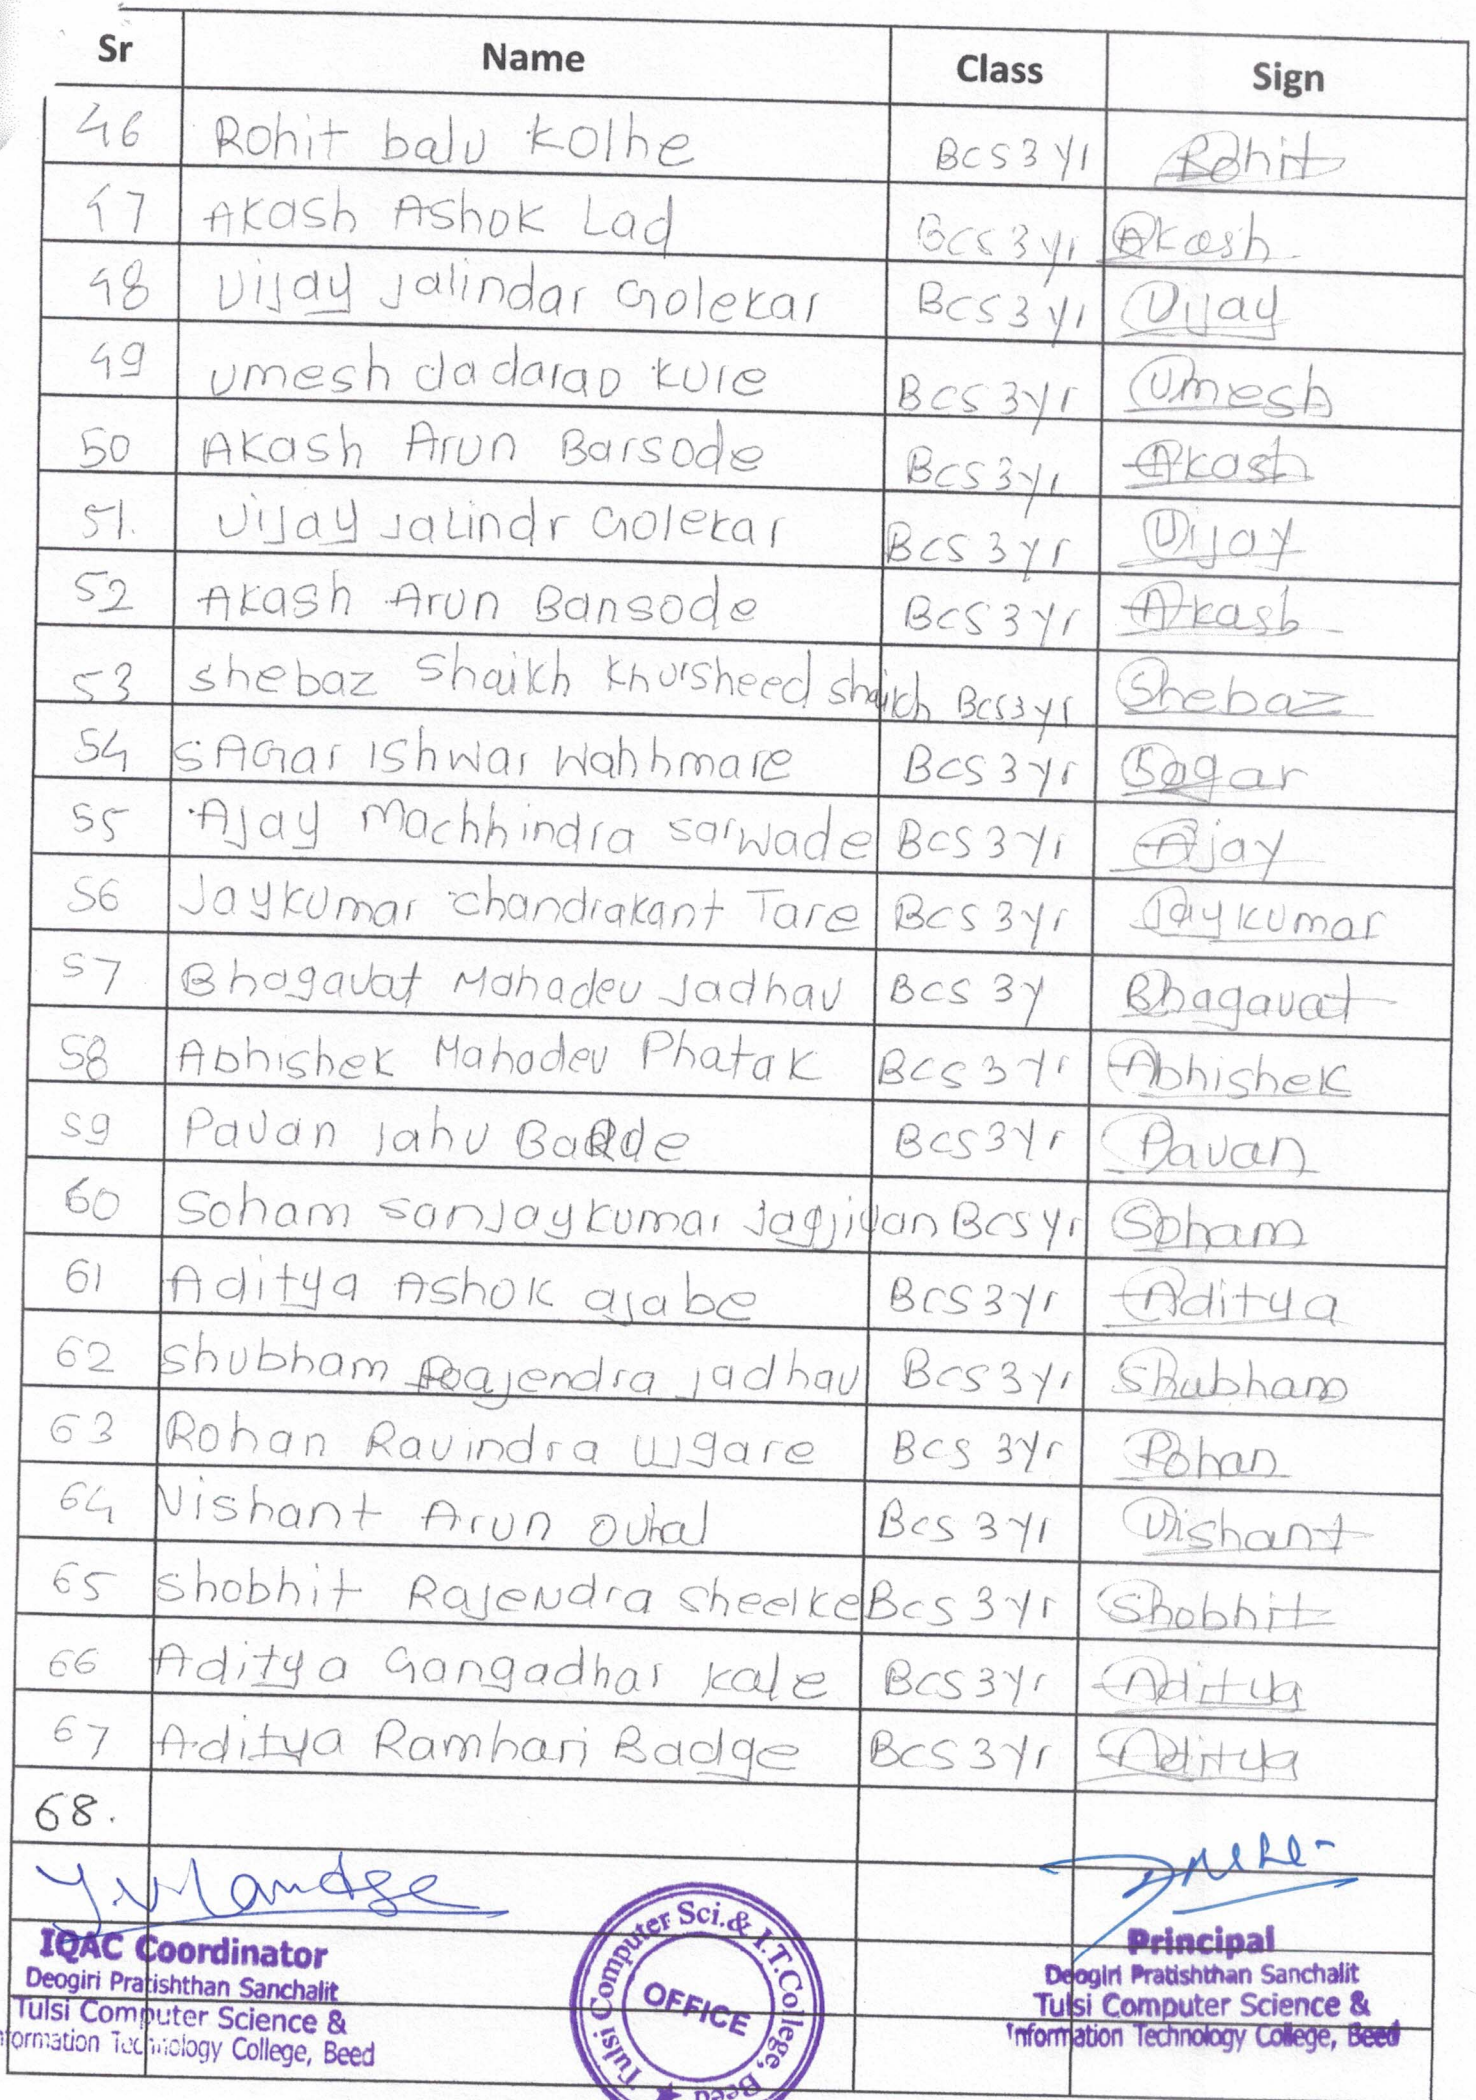 Sr Name Class Sign
46 Rohit balu Kolhe BCS 3 yr Rohit
47 Akash Ashok Lad BCS 3 yr Akash
48 Vijay Jalindar Golekar BCS 3 yr Vijay
49 Umesh dadarao Kure BCS 3yr Umesh
50 Akash Arun Barsode BCS 3yr Akash
51. Vijay Jalindr Golekar BCS 3yr Vijay
52 Akash Arun Bansode BCS 3yr Akash
53 Shebaz Shaikh Khursheed Shaikh BCS3yr Shebaz
54 SAGar Ishwar Wahhmare BCS 3yr Sagar
55 Ajay Machhindra Sarwade BCS 3yr Ajay
56 Jaykumar Chandrakant Tare BCS 3yr Jaykumar
57 Bhagavat Mahadev Jadhav BCS 3y Bhagavat
58 Abhishek Mahadev Phatak BCS 3yr Abhishek
59 Pavan Jahu BCS3yr Pavan
60 Soham Sanjaykumar Jagjivan BCS yr Soham
61 Aditya Ashok ajabe BCS 3yr Aditya
62 Shubham Rajendra Jadhav BCS 3yr Shubham
63 Rohan Ravindra BCS 3yr Rohan
64 Vishant Arun BCS 3yr Vishant
65 Shobhit Rajendra Sheelke BCS 3yr Shobhit
66 Aditya Gangadhar Kale BCS 3yr Aditya
67 Aditya Ramhari Badge BCS 3yr Aditya
68.
IQAC Coordinator
Deogiri Pratishthan Sanchalit
Tulsi Computer Science &
Information Technology College, Beed
Tulsi Computer Sci. & I.T. College, Beed
OFFICE
Principal
Deogiri Pratishthan Sanchalit
Tulsi Computer Science &
Information Technology College, Beed